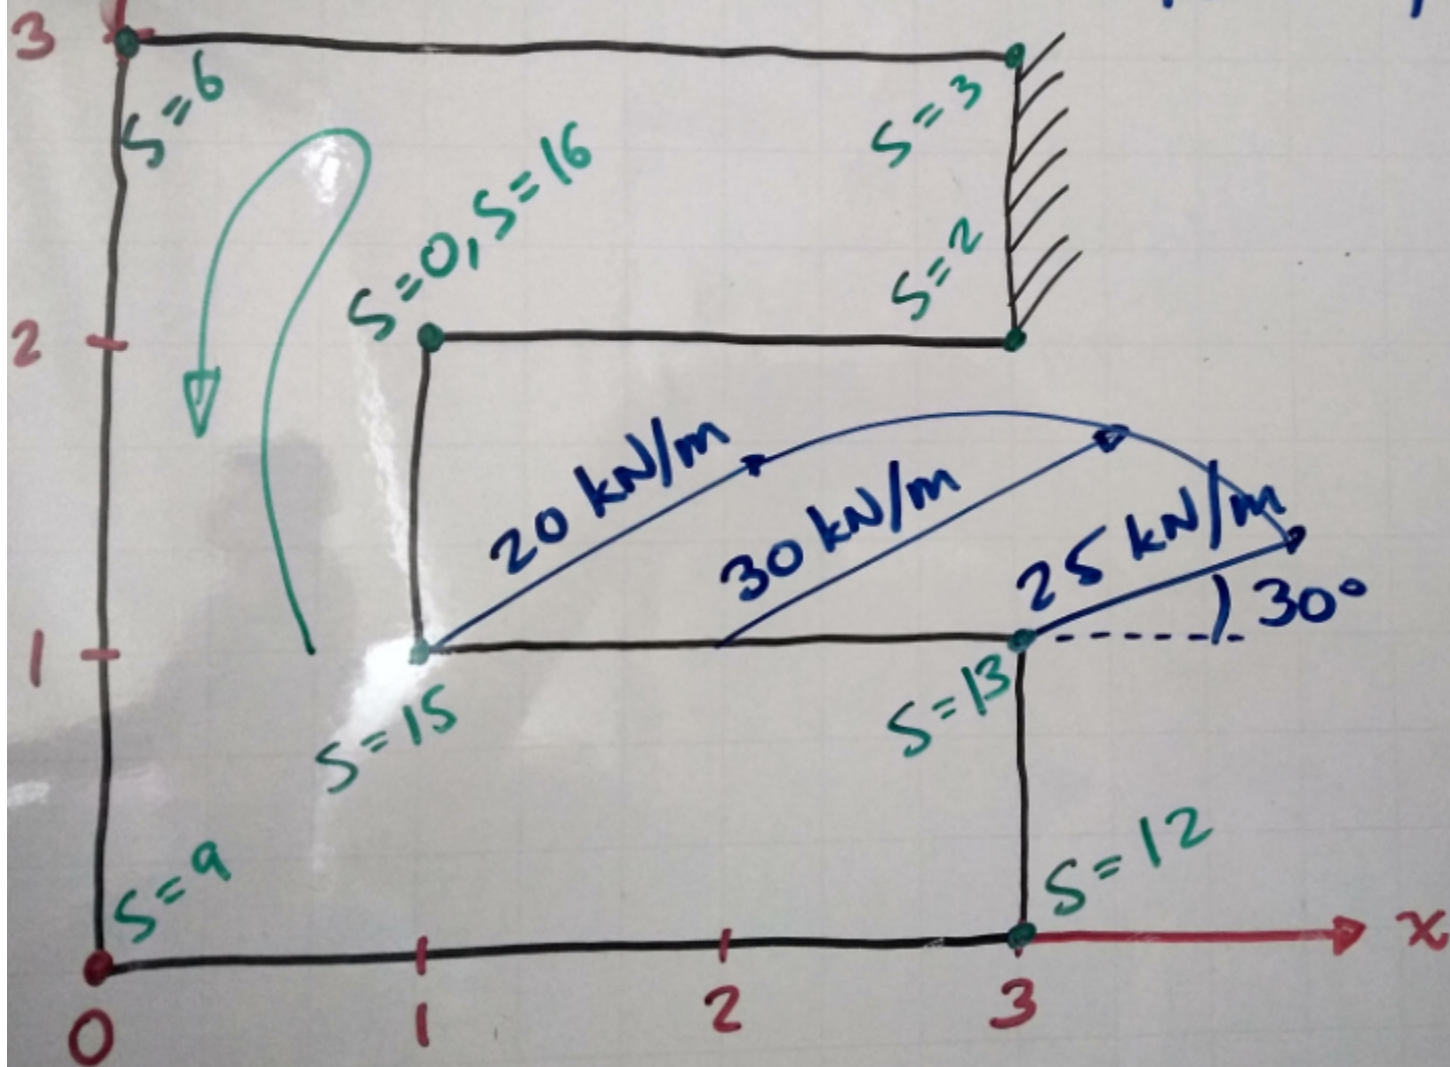 3
S=6
S=3
S=0, S=16
S=2
2
20 kN/m
30 kN/m
25 kN/m
30°
1
S=15
S=13
S=9
S=12
x
0
1
2
3